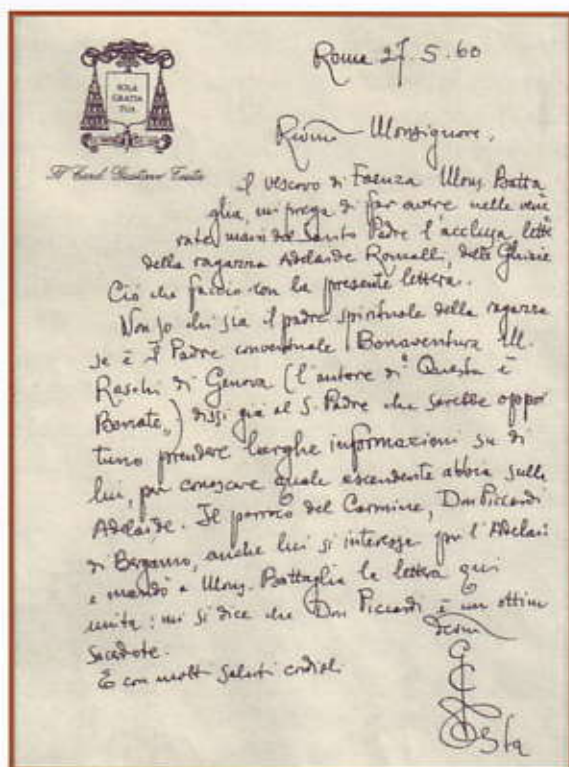 Roma 27.5.60
SOLA
GRATIA
TUA
Il Card. Gustavo Testa
Rev.mo Monsignore,
il vescovo di Faenza Mons. Batta
glia, mi prega di far avere nelle vene
rate mani del Santo Padre l'acclusa lette
della ragazza Adelaide Roncalli, delle Ghiaie
Ciò che faccio con la presente lettera.
Non so chi sia il padre spirituale della ragazza
se è il Padre conventuale Bonaventura M.
Raschi di Genova (l'autore di "Questa è
Bonate") dissi già al S. Padre che sarebbe oppor
tuno prendere larghe informazioni su di
lui, per conoscere quale ascendente abbia sulla
Adelaide. Il parroco del Carmine, Don Piccardi
di Bergamo, anche lui si interessa per l'Adelai
e mandò a Mons. Battaglia la lettera qui
unita: mi si dice che Don Piccardi è un ottimo
sacerdote.
E con molti saluti cordiali
G C Testa